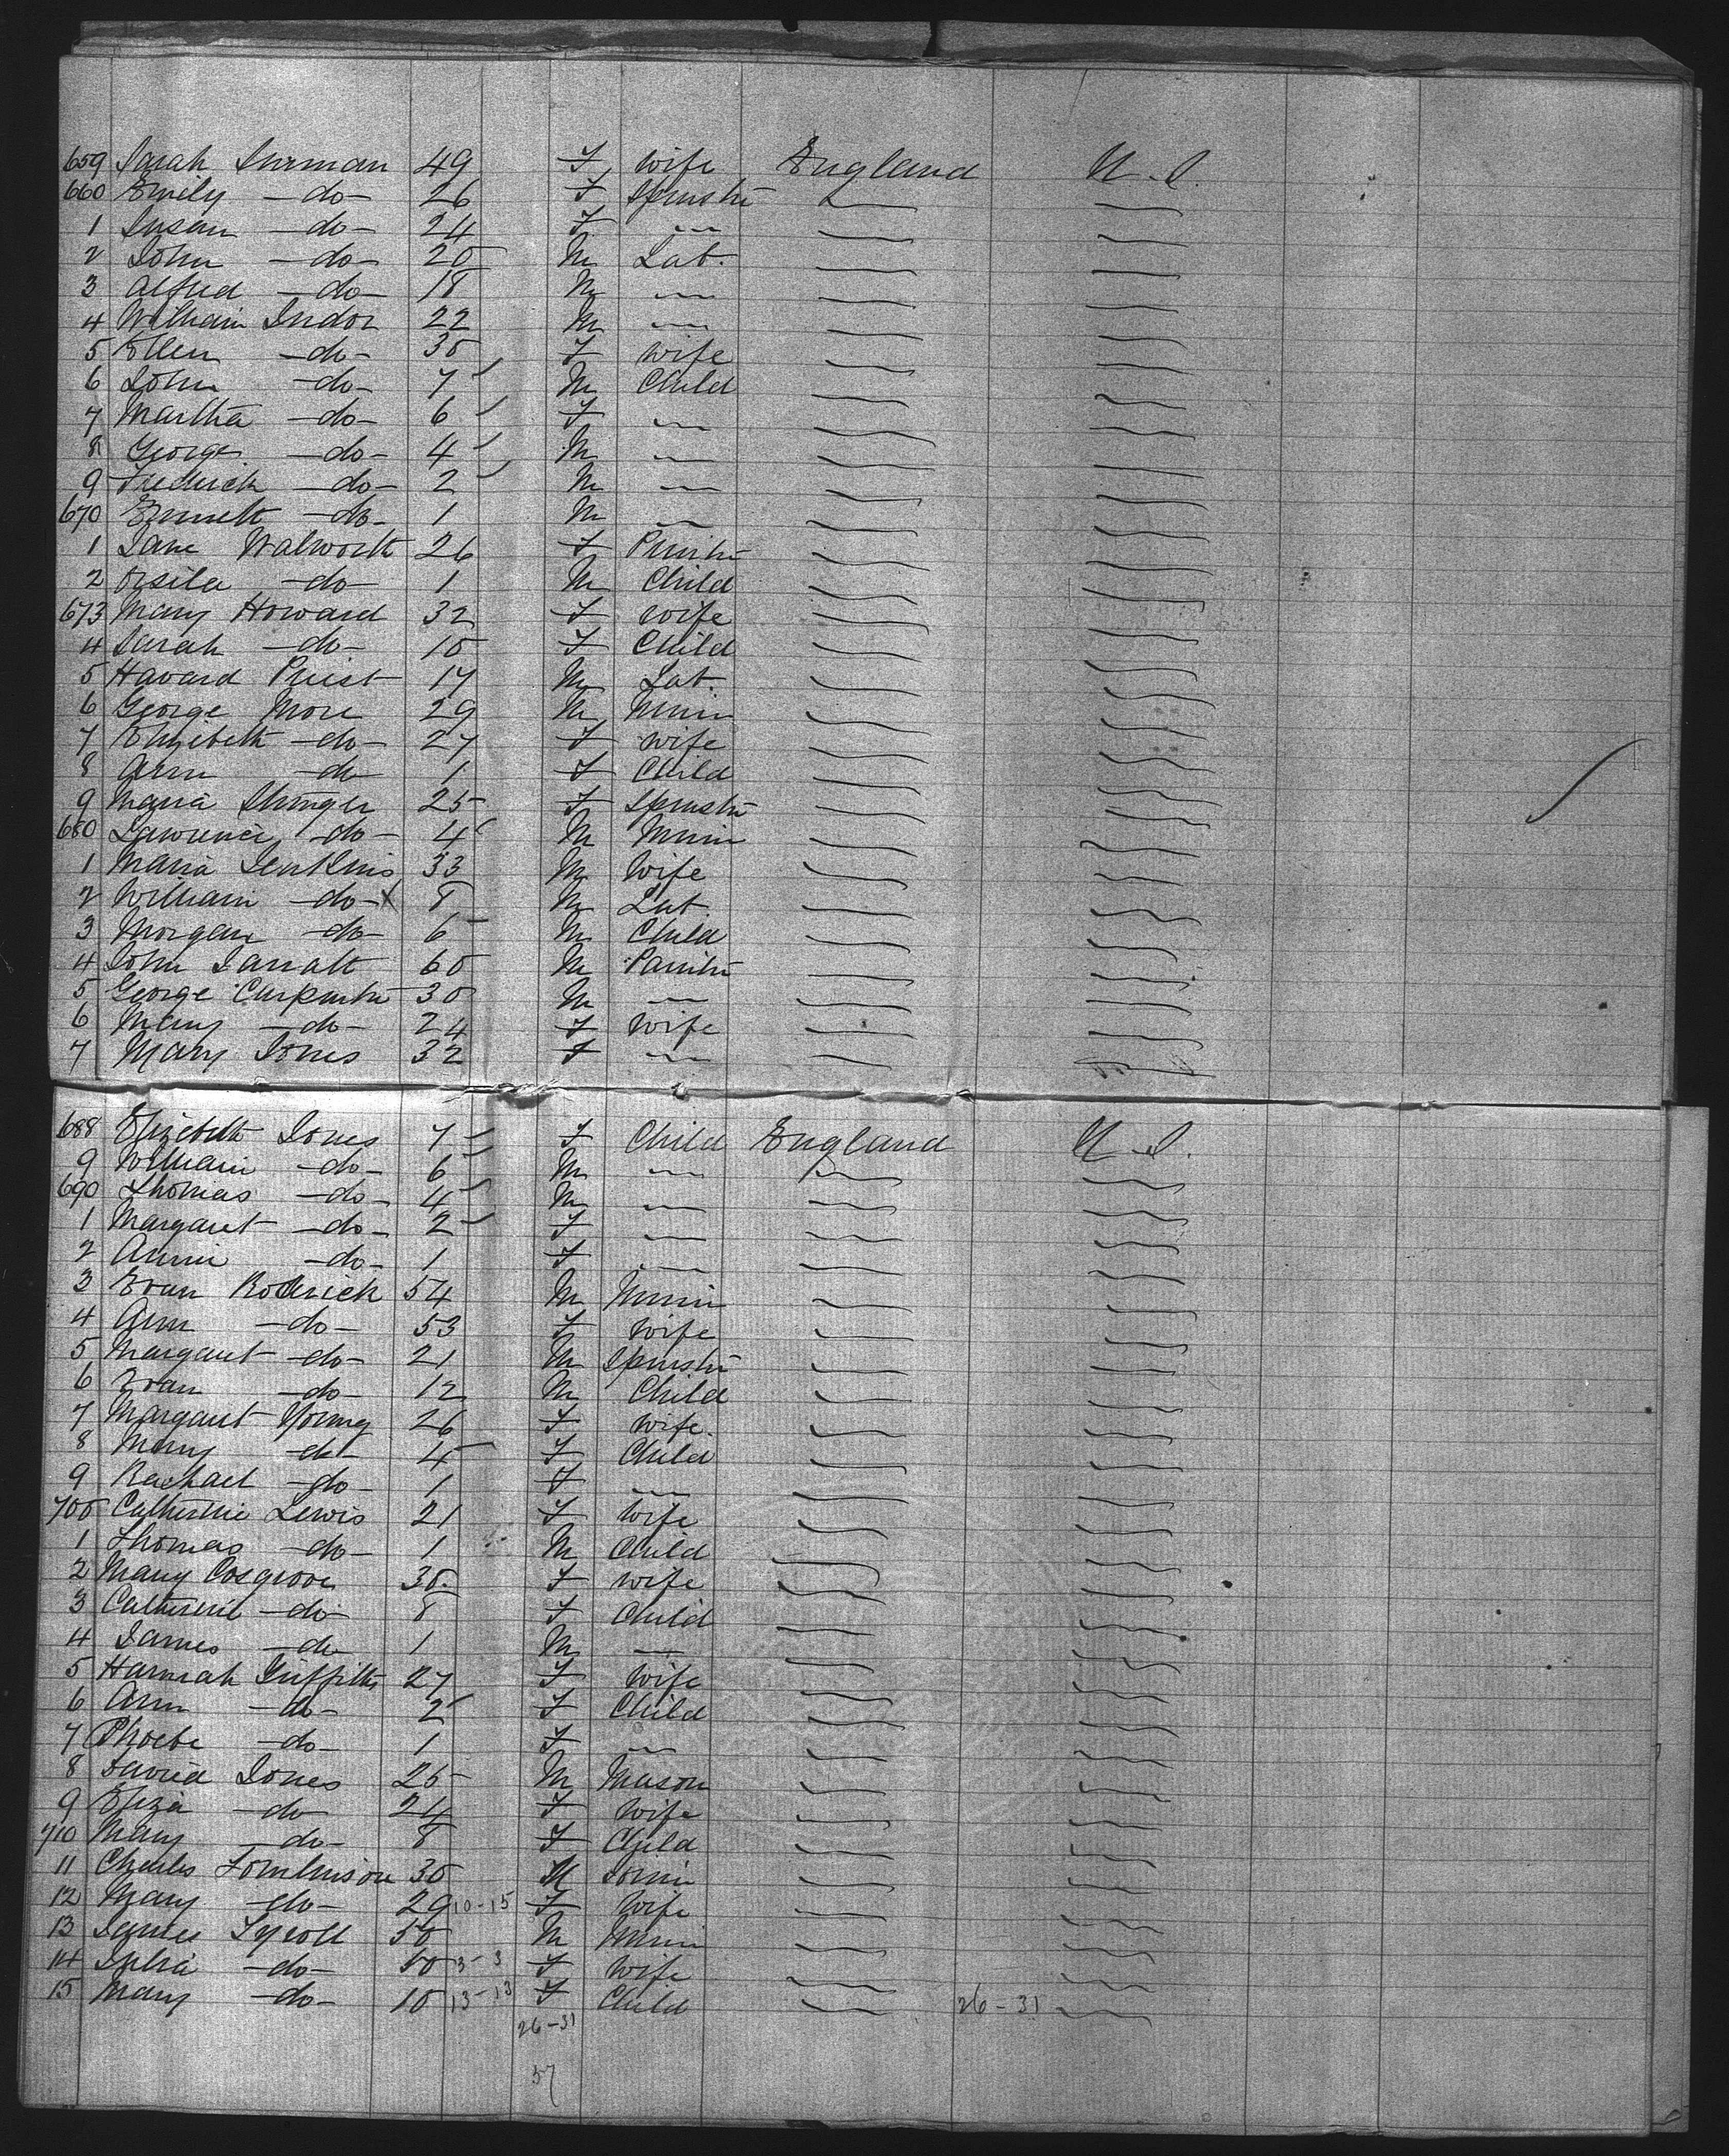 659 Sarah Surman 49 F wife England U.S.
660 Emily -do- 26 F Spinstr
1 Susan -do- 24 F
2 John -do- 20 M Lab.
3 Alfred -do- 18 M
4 William Sudor 22 M
5 Ellen -do- 30 F wife
6 John -do- 7 M Child
7 Martha -do- 6 F
8 George -do- 4 M
9 Fredrick -do- 2 M
670 -do- 1 M
1 Jane Walworth 26 F
2 -do- 1 M Child
673 Mary Howard 32 F wife
4 Sarah -do- 10 F Child
5 Havard Priest 17 M Lab.
6 George More 29 M Minr
7 Elizebeth -do- 27 F wife
8 Ann -do- 1 F Child
9 Maria Stringer 25 F Spinstr
680 Lawrence -do- 4 M Minr
1 Maria Jenkins 33 M Wife
2 William -do- X 8 M Lab
3 Morgan -do- 6 M Child
4 John Jarratt 60 M
5 George Carpentr 30 M
6 Mary -do- 24 F Wife
7 Mary Jones 32 F
688 Elizebeth Jones 7 F Child England U.S.
9 William -do- 6 M
690 Thomas -do- 4 M
1 Margaret -do- 2 F
2 Annie -do- 1 F
3 Evan Rodrick 54 M Minr
4 Ann -do- 53 F Wife
5 Margaret -do- 21 M Spinstr
6 Evan -do- 12 M Child
7 Margaret Young 26 F Wife.
8 Mary -do- 4 F Child
9 Rachael -do- 1 F
700 Catherine Lewis 21 F Wife
1 Thomas -do- 1 M Child
2 Mary Cosgrove 30 F wife
3 Catherine -do- 8 F Child
4 James -do- 1 M
5 Hannah Griffiths 27 F Wife
6 Ann -do- 2 F Child
7 Phoebe -do- 1 F
8 David Jones 25 M Mason
9 Eliza -do- 24 F Wife
710 Mary -do- 8 F Child
11 Charles Tomlinson 30 M
12 Mary -do- 29 10-15 F Wife
13 James 50 M Minr
14 -do- 50 3-3 F Wife
15 Mary -do- 10 13-13 F Child 26-31
26-31
57